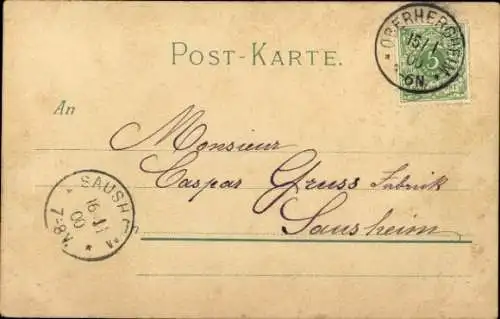 POST-KARTE.
OBERHERGHEIM
15/1
00
6N.
5
An
Monsieur
Caspar Gruss Fabrik
Sausheim
SAUSH
16
00
7-8V.